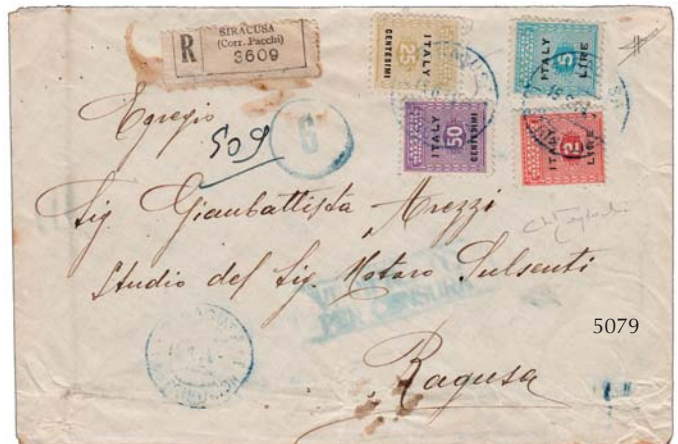 R
SIRACUSA
(Corr. Pacchi)
3609
25
CENTESIMI
ITALY
5
ITALY
LIRE
50
ITALY
CENTESIMI
2
ITALY
LIRE
Egregio
509
6
Sig Giambattista Arezzi
Studio del Sig. Notaro Sulsenti
PER CENSURA
5079
Ragusa